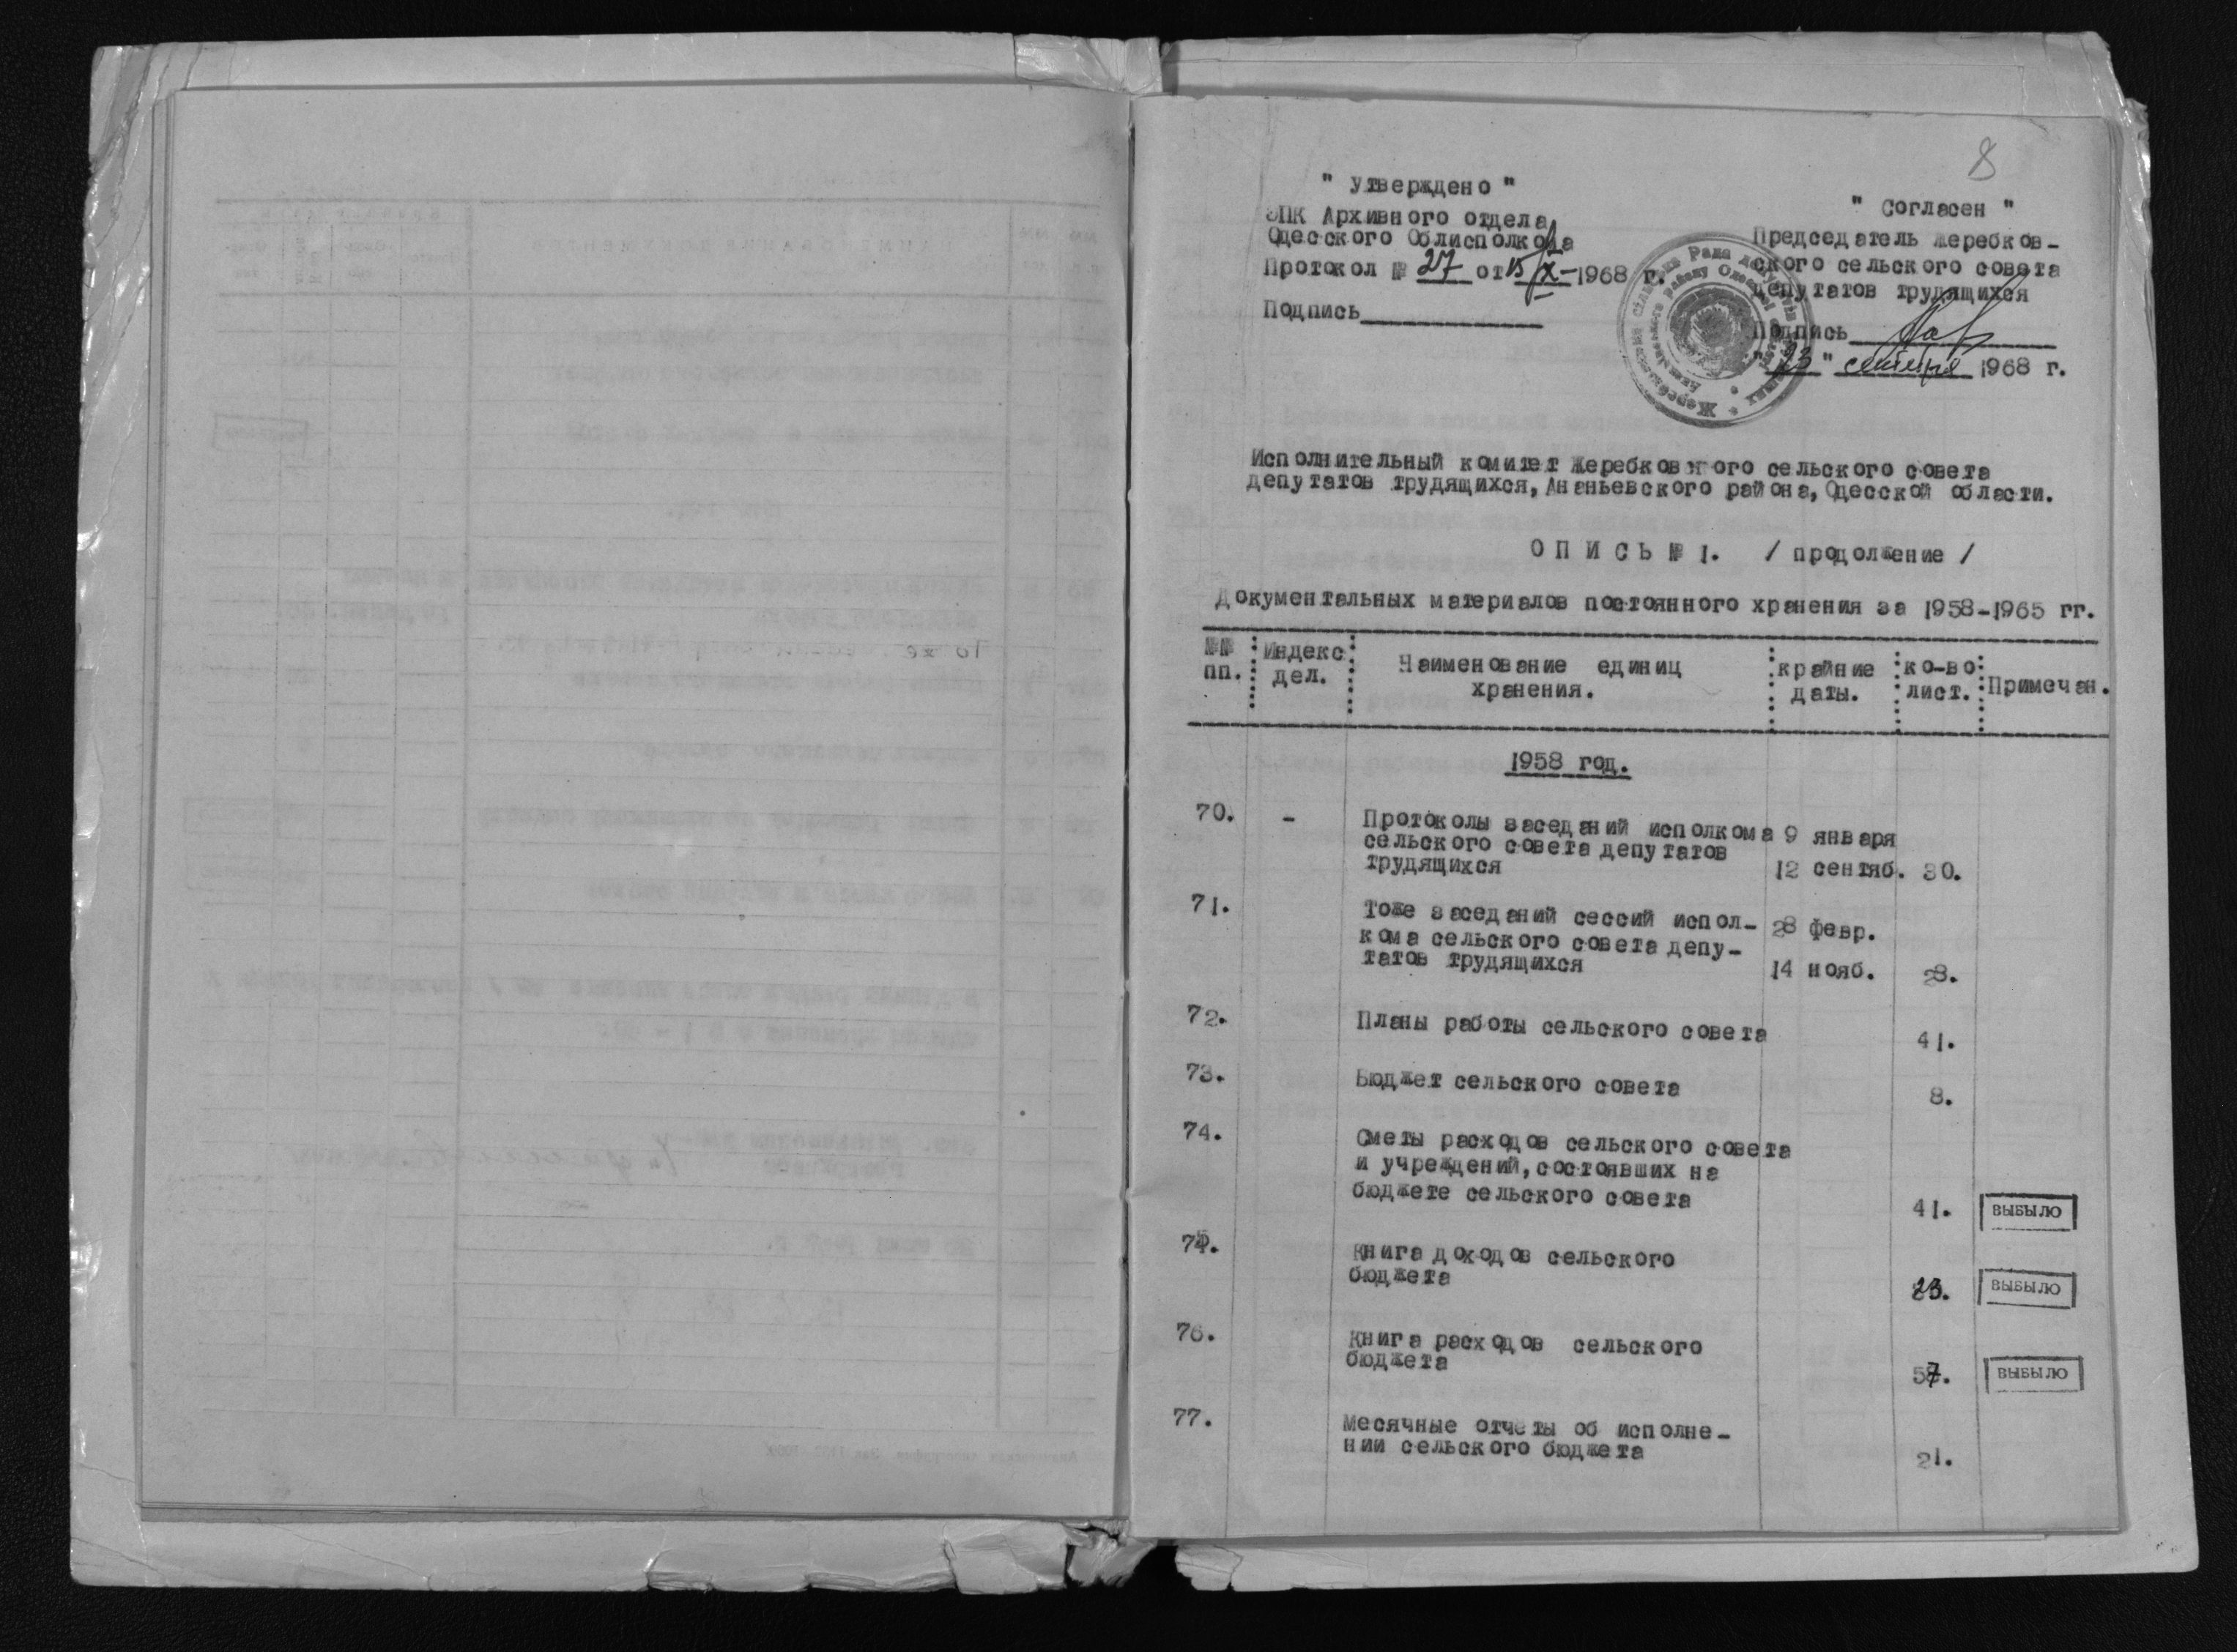 8
" Утверждено "
ЭПК Архивного отдела
Одесского Облисполкома
Протокол № 27 от 15/IX-1968 г.
Подпись
" Согласен "
Председатель Жеребков-
ского сельского совета
депутатов трудящихся
Подпись
"23" сентября 1968 г.
Исполнительный комитет Жеребковского сельского совета
депутатов трудящихся, Ананьевского района, Одесской области.
О П И С Ь № 1. / продолжение /
Документальных материалов постоянного хранения за 1958-1965 гг.
№№ пп. Индекс дел. Наименование единиц хранения. крайние даты. ко-во лист. Примечан.
1958 год.
70. - Протоколы заседаний исполкома 9 января
сельского совета депутатов
трудящихся 12 сентяб. 30.
71. Тоже заседаний сессий испол- 28 февр.
кома сельского совета депу-
татов трудящихся 14 нояб. 28.
72. Планы работы сельского совета 41.
73. Бюджет сельского совета 8.
74. Сметы расходов сельского совета
и учреждений, состоявших на
бюджете сельского совета 41. ВЫБЫЛО
75. Книга доходов сельского
бюджета 23. ВЫБЫЛО
76. Книга расходов сельского
бюджета 57. ВЫБЫЛО
77. Месячные отчеты об исполне-
нии сельского бюджета 21.